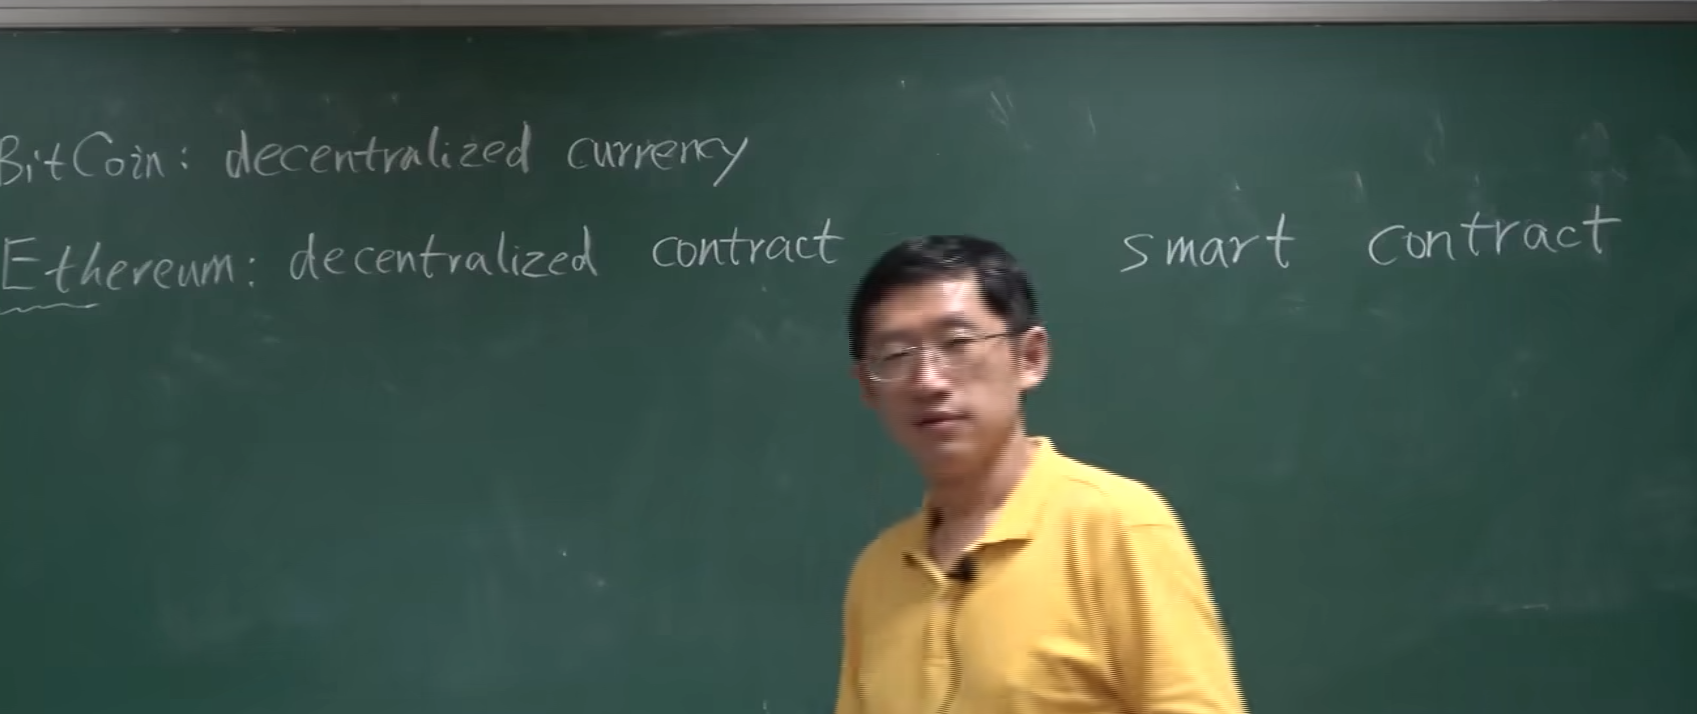 BitCoin: decentralized currency
Ethereum: decentralized contract smart contract